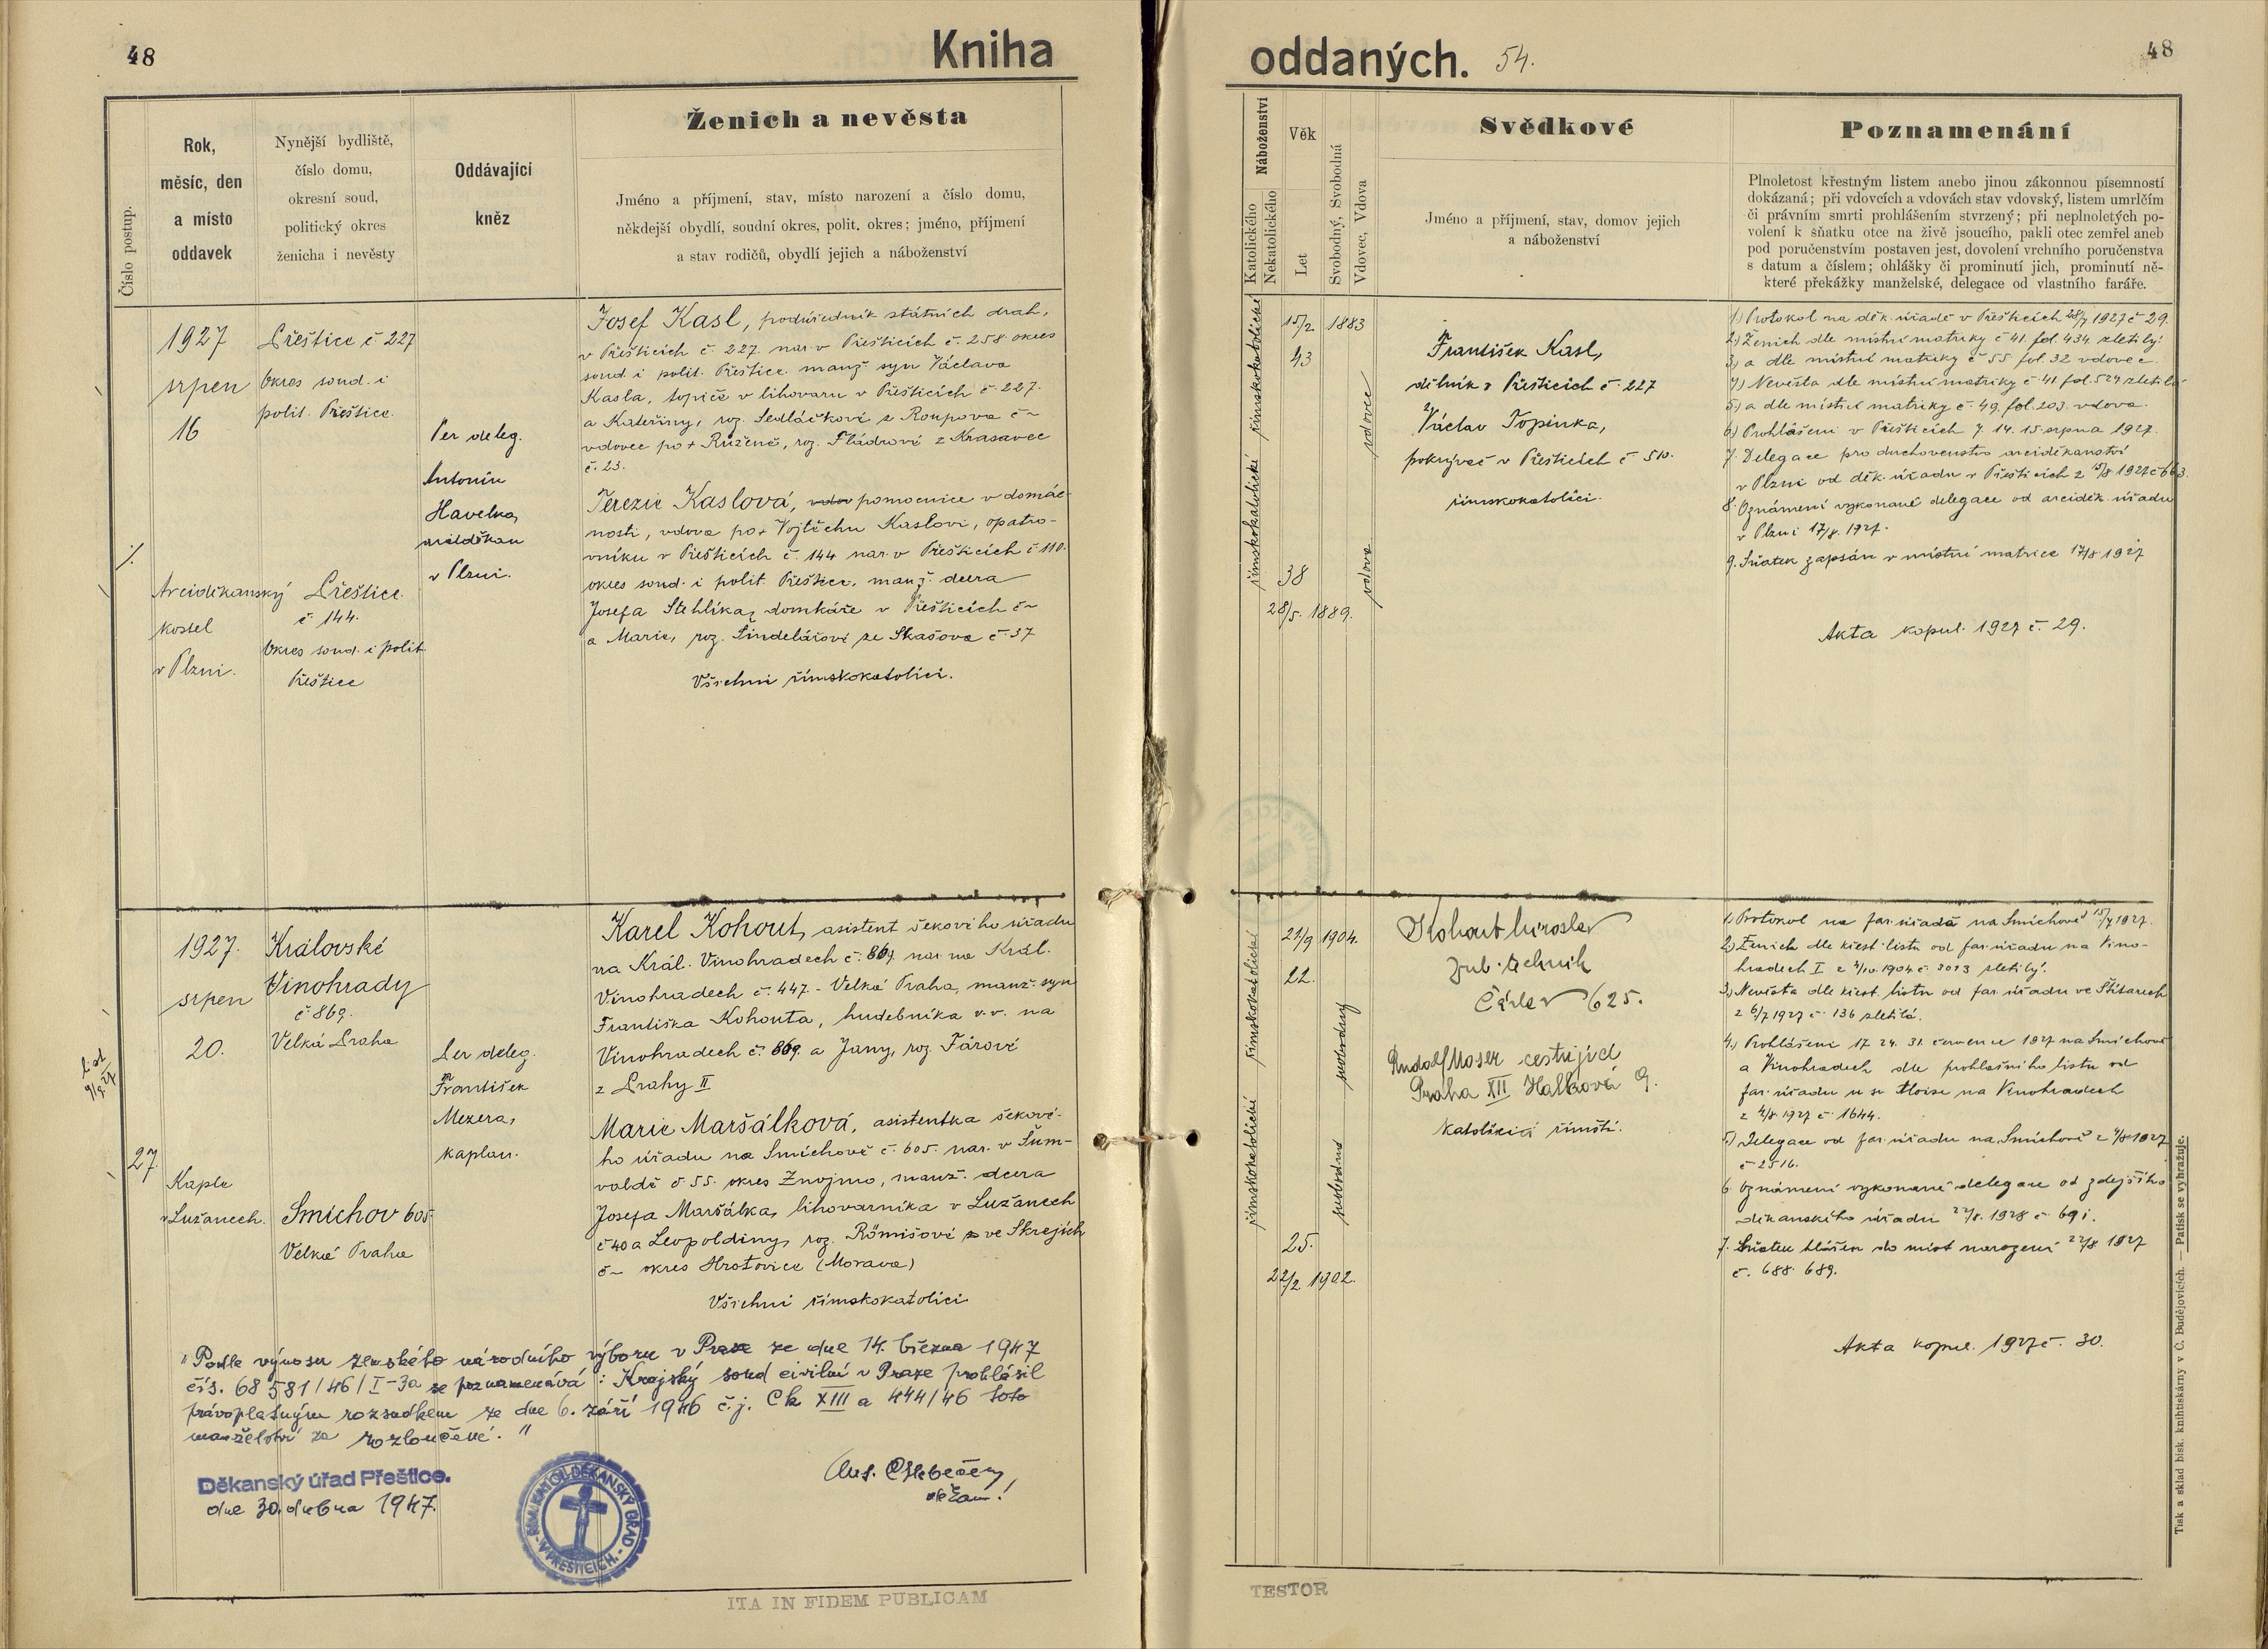 48
Kniha
Číslo postup.
Rok,
měsíc, den
a místo
oddavek
Nynější bydliště,
číslo domu,
okresní soud,
politický okres
ženicha i nevěsty
Oddávající
kněz
Ženich a nevěsta
Jméno a příjmení, stav, místo narození a číslo domu,
někdejší obydlí, soudní okres, polit. okres; jméno, příjmení
a stav rodičů, obydlí jejich a náboženství
1927
srpen
16
Arciděkanský
kostel
v Plzni.
Přeštice č 227
Okres soud. i
polit. Přeštice.
Přeštice
č. 144.
Okres soud. i polit.
Přeštice
Per deleg.
Antonín
Havelka,
arciděkan
v Plzni.
Josef Kasl, podúředník státních drah,
v Přešticích č. 227. nar. v Přešticích č. 258. okres
soud. i polit. Přeštice. manž. syn Václava
Kasla, topiče v lihovaru v Přešticích č. 227.
a Kateřiny, roz. Sedláčkové z Roupova č –
vdovec po + Růženě, roz. Fládrové z Krasavec
č. 23.
Terezie Kaslová, vdov pomocnice v domác-
nosti, vdova po + Vojtěchu Kaslovi, opatro-
vníku v Přešticích č. 144 nar. v Přešticích č 110.
okres soud. i polit. Přeštice, manž. dcera
Josefa Stehlíka, domkáře v Přešticích č –
a Marie, roz. Šindelářové ze Skašova č. 37
Všichni římskokatolíci.
27.
1927.
srpen
20.
Kaple
v Lužanech.
Královské
Vinohrady
č. 869.
Velká Praha
Smíchov 605.
Velká Praha
Per deleg.
František
Mezera,
kaplan.
Karel Kohout, asistent šekového úřadu
na Král. Vinohradech č. 869. nar. na Král.
Vinohradech č. 447. - Velká Praha, manž. syn
Františka Kohouta, hudebníka v. v. na
Vinohradech č. 869. a Jany, roz. Fárové
z Prahy II
Marie Maršálková, asistentka šekové-
ho úřadu na Smíchově č. 605. nar. v Šum-
valdě č 55. okres Znojmo, manž. dcera
Josefa Maršálka, lihovarníka v Lužanech
č 40 a Leopoldiny, roz. Römišové z ve Skrejích
č – okres Hrotovice (Morava)
Všichni římskokatolíci.
"Podle výnosu zemského národního výboru v Praze ze dne 14. března 1947
čís. 68 581/46/I-3a se poznamenává: Krajský soud civilní v Praze prohlásil
právoplatným rozsudkem ze dne 6. září 1946 č.j. Ck XIII a 444/46 toto
manželství za rozloučené."
Děkanský úřad Přeštice.
dne 30. dubna 1947.
ŘÍM. KATOL. DĚKANSKÝ ÚŘAD
V PŘEŠTICÍCH.
děkan!
ITA IN FIDEM PUBLICAM
oddaných. 54.
48
Náboženství
Katolického
Nekatolického
Věk
Let
Svobodný, Svobodná
Vdovec, Vdova
Svědkové
Jméno a příjmení, stav, domov jejich
a náboženství
Poznamenání
Plnoletost křestným listem anebo jinou zákonnou písemností
dokázaná; při vdovcích a vdovách stav vdovský, listem umrlčím
či právním smrti prohlášením stvrzený; při neplnoletých po-
volení k sňatku otce na živě jsoucího, pakli otec zemřel aneb
pod poručenstvím postaven jest, dovolení vrchního poručenstva
s datum a číslem; ohlášky či prominutí jich, prominutí ně-
které překážky manželské, delegace od vlastního faráře.
římskokatolické
římskokatolické
15/2 1883
43
38
28/5. 1889.
vdovec
vdova
František Kasl,
dělník v Přešticích č. 227
Václav Topinka,
pokrývač v Přešticích č 510.
římskokatolíci.
1.) Protokol na děk. úřadě v Přešticích 28/7 1927 č 29.
2.) Ženich dle místní matriky č 41. fol. 434. zletilý.
3.) a dle místní matriky č 55 fol 32 vdovec.
4.) Nevěsta dle místní matriky č. 41. fol. 524 zletilá
5.) a dle místní matriky č. 49. fol. 203. vdova.
6.) Prohlášeni v Přešticích 7. 14. 15. srpna 1927.
7. Delegace pro duchovenstvo arciděkanství
v Plzni od děk. úřadu v Přešticích z 15/8 1927 č 663.
8. Oznámení vykonané delegace od arciděk. úřadu
v Plzni 17/8. 1927.
9. Sňatek zapsán v místní matrice 17/8 1927
Akta kopul. 1927 č. 29.
římskokatolické
římskokatolické
21/9 1904.
22.
25.
22/2 1902.
svobodný
svobodná
Kohout Miroslav
zub. technik
Čáslav 625.
Rudolf Moser cestující
Praha XII Halkova 9.
katolíci římští.
1. Protokol na far. úřadě na Smíchově 15/7 1927.
2.) Ženich dle křest. listu od far. úřadu na Vino-
hradech I z 4/10. 1904. č. 3013 zletilý.
3.) Nevěsta dle křest. listu od far. úřadu ve Štítarech
z 6/7 1927 č. 136 zletilá.
4.) Prohlášeni 17. 24. 31. července 1927 na Smíchově
a Vinohradech dle prohlašního listu od
far. úřadu u sv Aloise na Vinohradech
z 4/8 1927 č. 1644.
5.) Delegace od far. úřadu na Smíchově z 4/8 1927
č 2516.
6. Oznámení vykonané delegace od zdejšího
děkanského úřadu 22/8. 1928 č. 691.
7. Sňatek hlášen do míst narození 22/8 1927
č. 688. 689.
Akta kopul. 1927 č. 30.
Tisk a sklad bisk. knihtiskárny v Č. Budějovicích. — Patisk se vyhražuje.
TESTOR